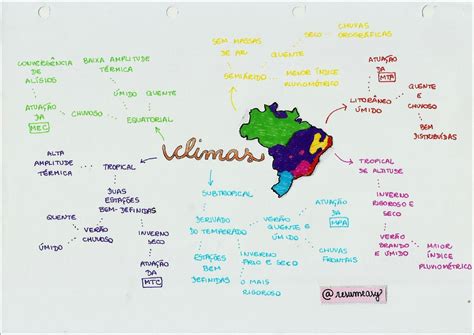 CONVERGÊNCIA
DE
ALÍSIOS
BAIXA AMPLITUDE
TÉRMICA
ATUAÇÃO
DA
MEC
CHUVOSO
ÚMIDO
QUENTE
EQUATORIAL
SEM MASSAS
DE AR
QUENTE
SECO
CHUVAS
OROGRÁFICAS
SEMIÁRIDO
MENOR ÍNDICE
PLUVIOMÉTRICO
ATUAÇÃO
DA
MTA
LITORÂNEO
ÚMIDO
QUENTE
E
CHUVOSO
BEM
DISTRIBUÍDAS
climas
ALTA
AMPLITUDE
TÉRMICA
TROPICAL
DUAS
ESTAÇÕES
BEM-DEFINIDAS
QUENTE
ÚMIDO
VERÃO
CHUVOSO
INVERNO
SECO
ATUAÇÃO
DA
MTC
SUBTROPICAL
DERIVADO
DO TEMPERADO
ESTAÇÕES
BEM
DEFINIDAS
VERÃO
QUENTE E
ÚMIDO
ATUAÇÃO
DA
MPA
CHUVAS
FRONTAIS
INVERNO
FRIO E SECO
O MAIS
RIGOROSO
TROPICAL
DE ALTITUDE
INVERNO
RIGOROSO E
SECO
VERÃO
BRANDO
E ÚMIDO
MAIOR
ÍNDICE
PLUVIOMÉTRICO
@resumeasy